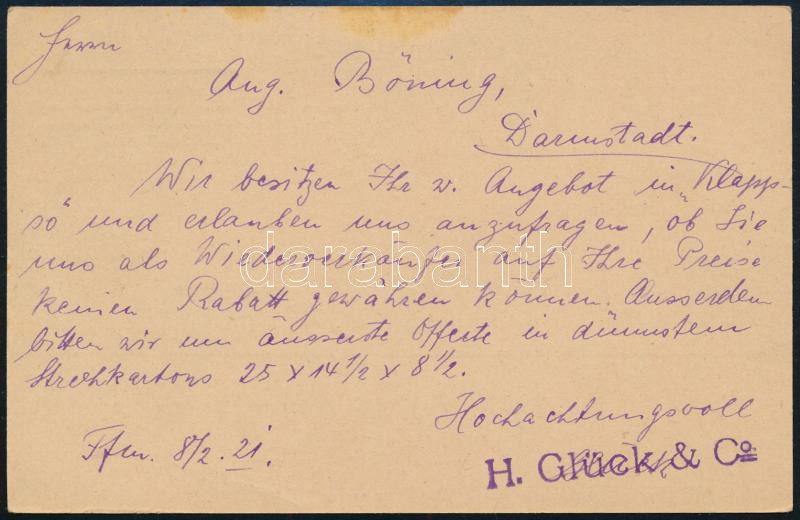 Herrn
Aug. Böning,
Darmstadt.
Wir besitzen Ihr w. Angebot in „Klapp-
so“ und erlauben uns anzufragen, ob Sie
uns als Wiederverkäufer auf Ihre Preise
keinen Rabatt gewähren können. Ausserdem
bitten wir um äusserste Offerte in dünnstem
Strohkartons 25 x 14 1/2 x 8 1/2.
Hochachtungsvoll
Ffm. 8/2. 21.
H. Glück & Co
darabanth